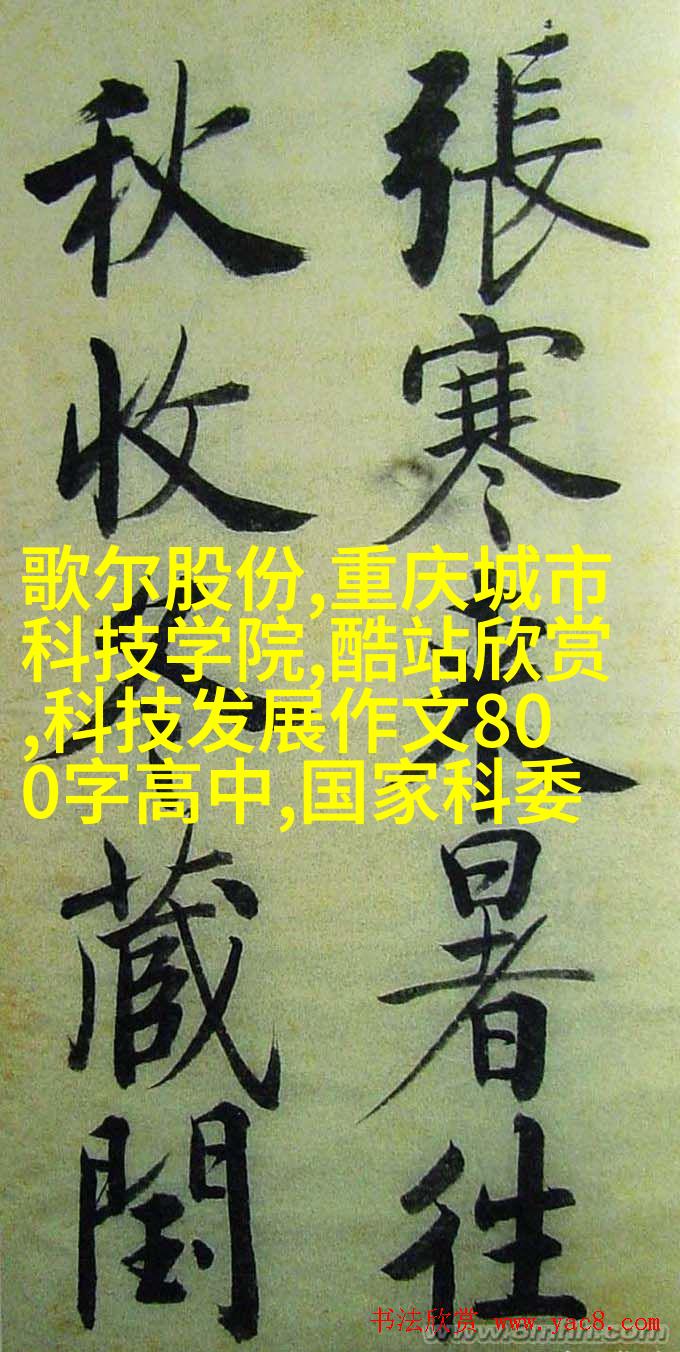 張寒来暑往
秋收冬藏閏
歌尔股份,重庆城市
科技学院,酷站欣赏
,科技发展作文80
0字高中,国家科委
书法欣赏 www.yac8.com